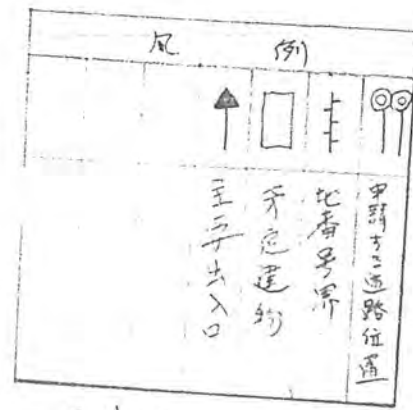 凡例
申請する道路位置
地番号界
予定建物
主要出入口